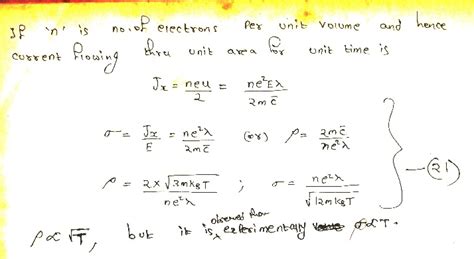 If 'n' is no. of electrons per unit volume and hence
current flowing thru unit area for unit time is
Jx = neu/2 = ne²Eλ/2mc̄
σ = Jx/E = ne²λ/2mc̄ (or) ρ = 2mc̄/ne²λ
ρ = 2×√3mkBT/ne²λ ; σ = ne²λ/√12mkBT —(21)
observed from
ρ∝√T, but it is experimentally ρ∝T.